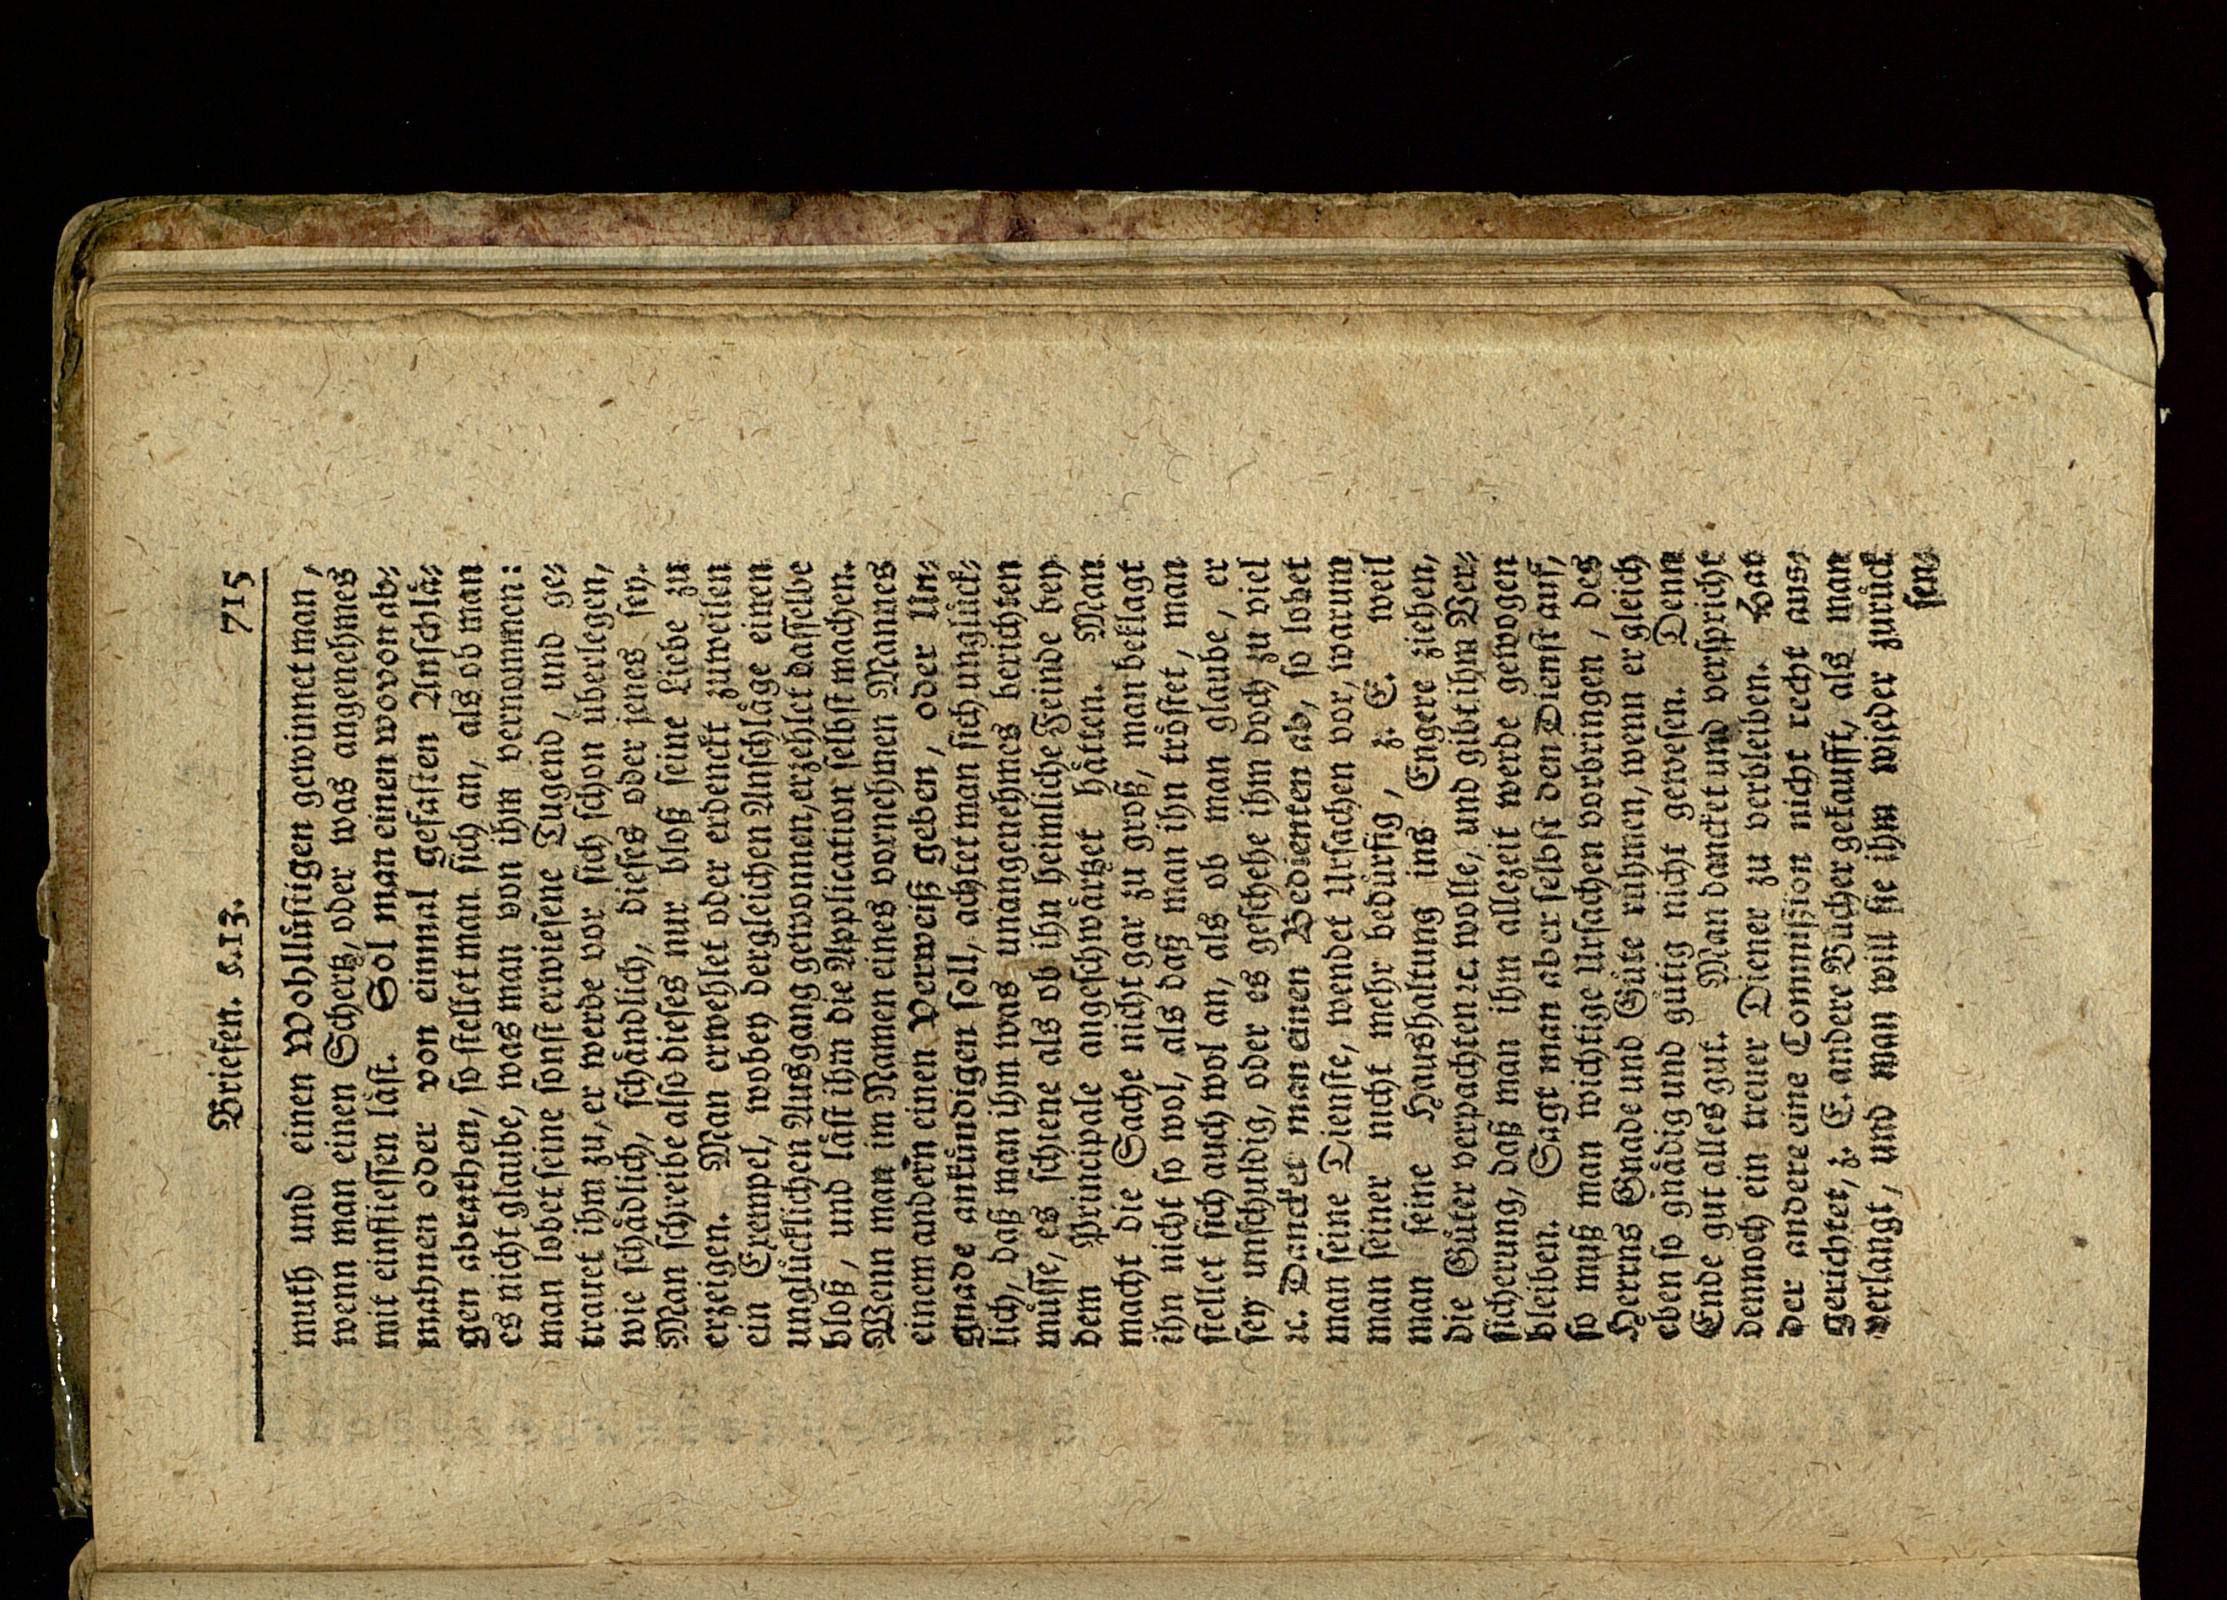 Briefen. §.13. 715
muth und einen Wohllüstigen gewinnet man,
wenn man einen Schertz, oder was angenehmes
mit einfliessen läst. Sol man einen wovon ab-
mahnen oder von einmal gefasten Anschlä-
gen abrathen, so stellet man sich an, als ob man
es nicht glaube, was man von ihm vernommen:
man lobet seine sonst erwiesene Tugend, und ge-
trauet ihm zu, er werde vor sich schon überlegen,
wie schädlich, schändlich, dieses oder jenes sey.
Man schreibe also dieses nur bloß seine Liebe zu
erzeigen. Man erwehlet oder erdenckt zuweilen
ein Exempel, wobey dergleichen Anschläge einen
unglücklichen Ausgang gewonnen, erzehlet dasselbe
bloß, und läst ihm die Application selbst machen.
Wenn man im Namen eines vornehmen Mannes
einem andern einen Verweiß geben, oder Un-
gnade ankündigen soll, achtet man sich unglück-
lich, daß man ihm was unangenehmes berichten
müsse, es schiene als ob ihn heimliche Feinde bey
dem Principale angeschwärtzet hätten. Man
macht die Sache nicht gar zu groß, man beklagt
ihn nicht so wol, als daß man ihn tröstet, man
stellet sich auch wol an, als ob man glaube, er
sey unschuldig, oder es geschehe ihm doch zu viel
ꝛc. Dancket man einen Bedienten ab, so lobet
man seine Dienste, wendet Ursachen vor, warum
man seiner nicht mehr bedürfig, z. E. weil
man seine Haushaltung ins Engere ziehen,
die Güter verpachten ꝛc. wolle, und gibt ihm Ver-
sicherung, daß man ihm allezeit werde gewogen
bleiben. Sagt man aber selbst den Dienst auf,
so muß man wichtige Ursachen vorbringen, des
Herrns Gnade und Güte rühmen, wenn er gleich
eben so gnädig und gütig nicht gewesen. Denn
Ende gut alles gut. Man dancket und verspricht
dennoch ein treuer Diener zu verbleiben. Hat
der andere eine Commißion nicht recht aus-
gerichtet, z. E. andere Bücher gekaufft, als man
verlangt, und man will sie ihm wieder zurück
sen-